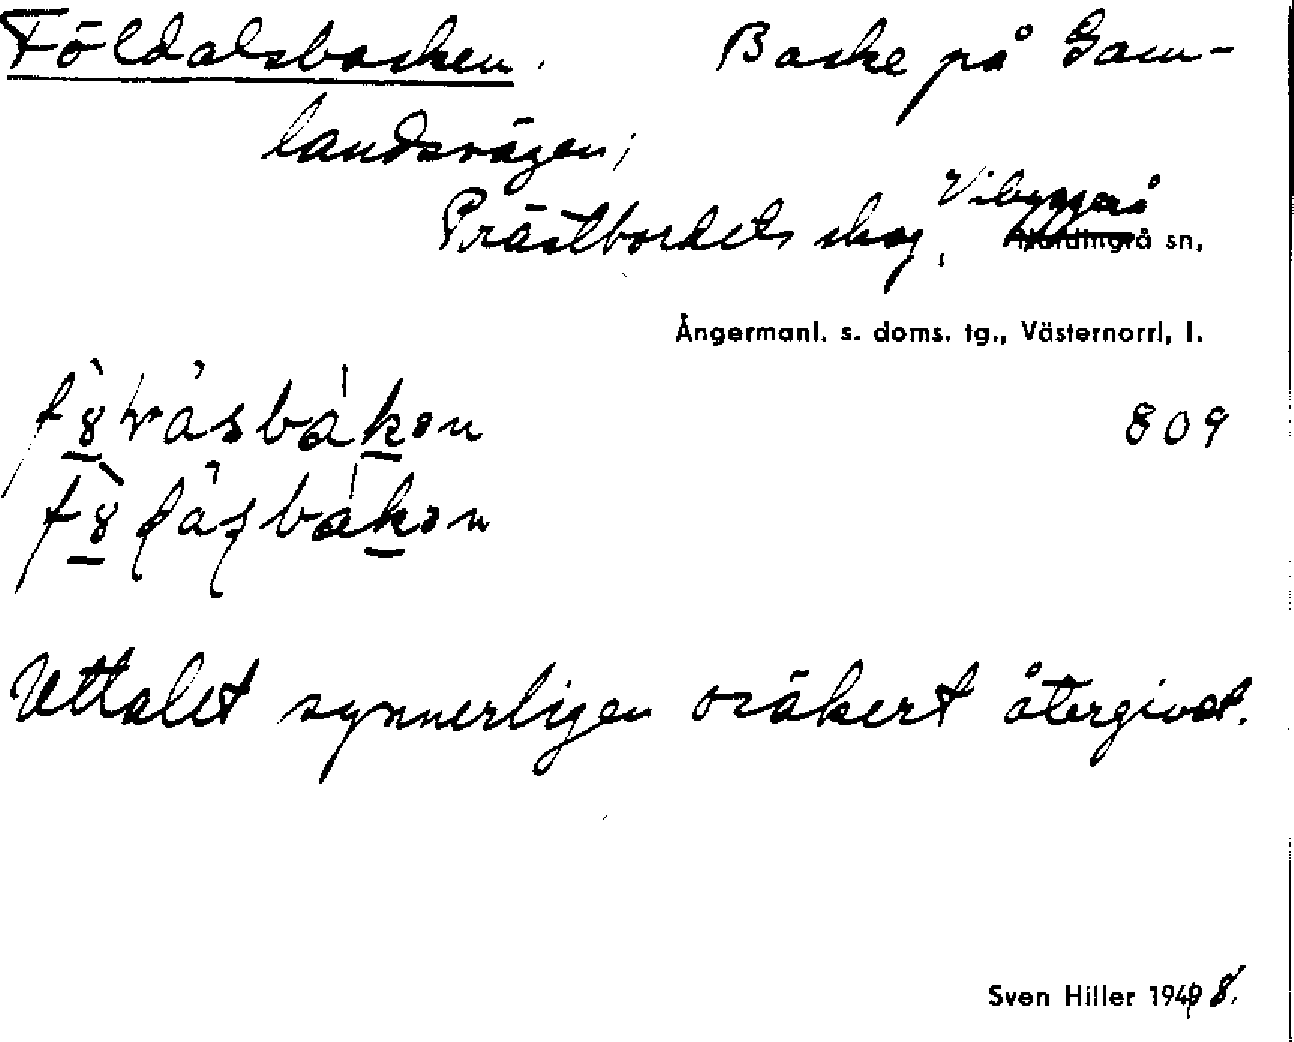 Földalsbacken. Backe på Gam-
landsvägen;
Prästbordets skog, Vibyggerå
Nordingrå sn,
Ångermanl. s. doms. tg., Västernorrl. l.
809
Uttalet synnerligen osäkert återgivet.
Sven Hiller 1949 8.